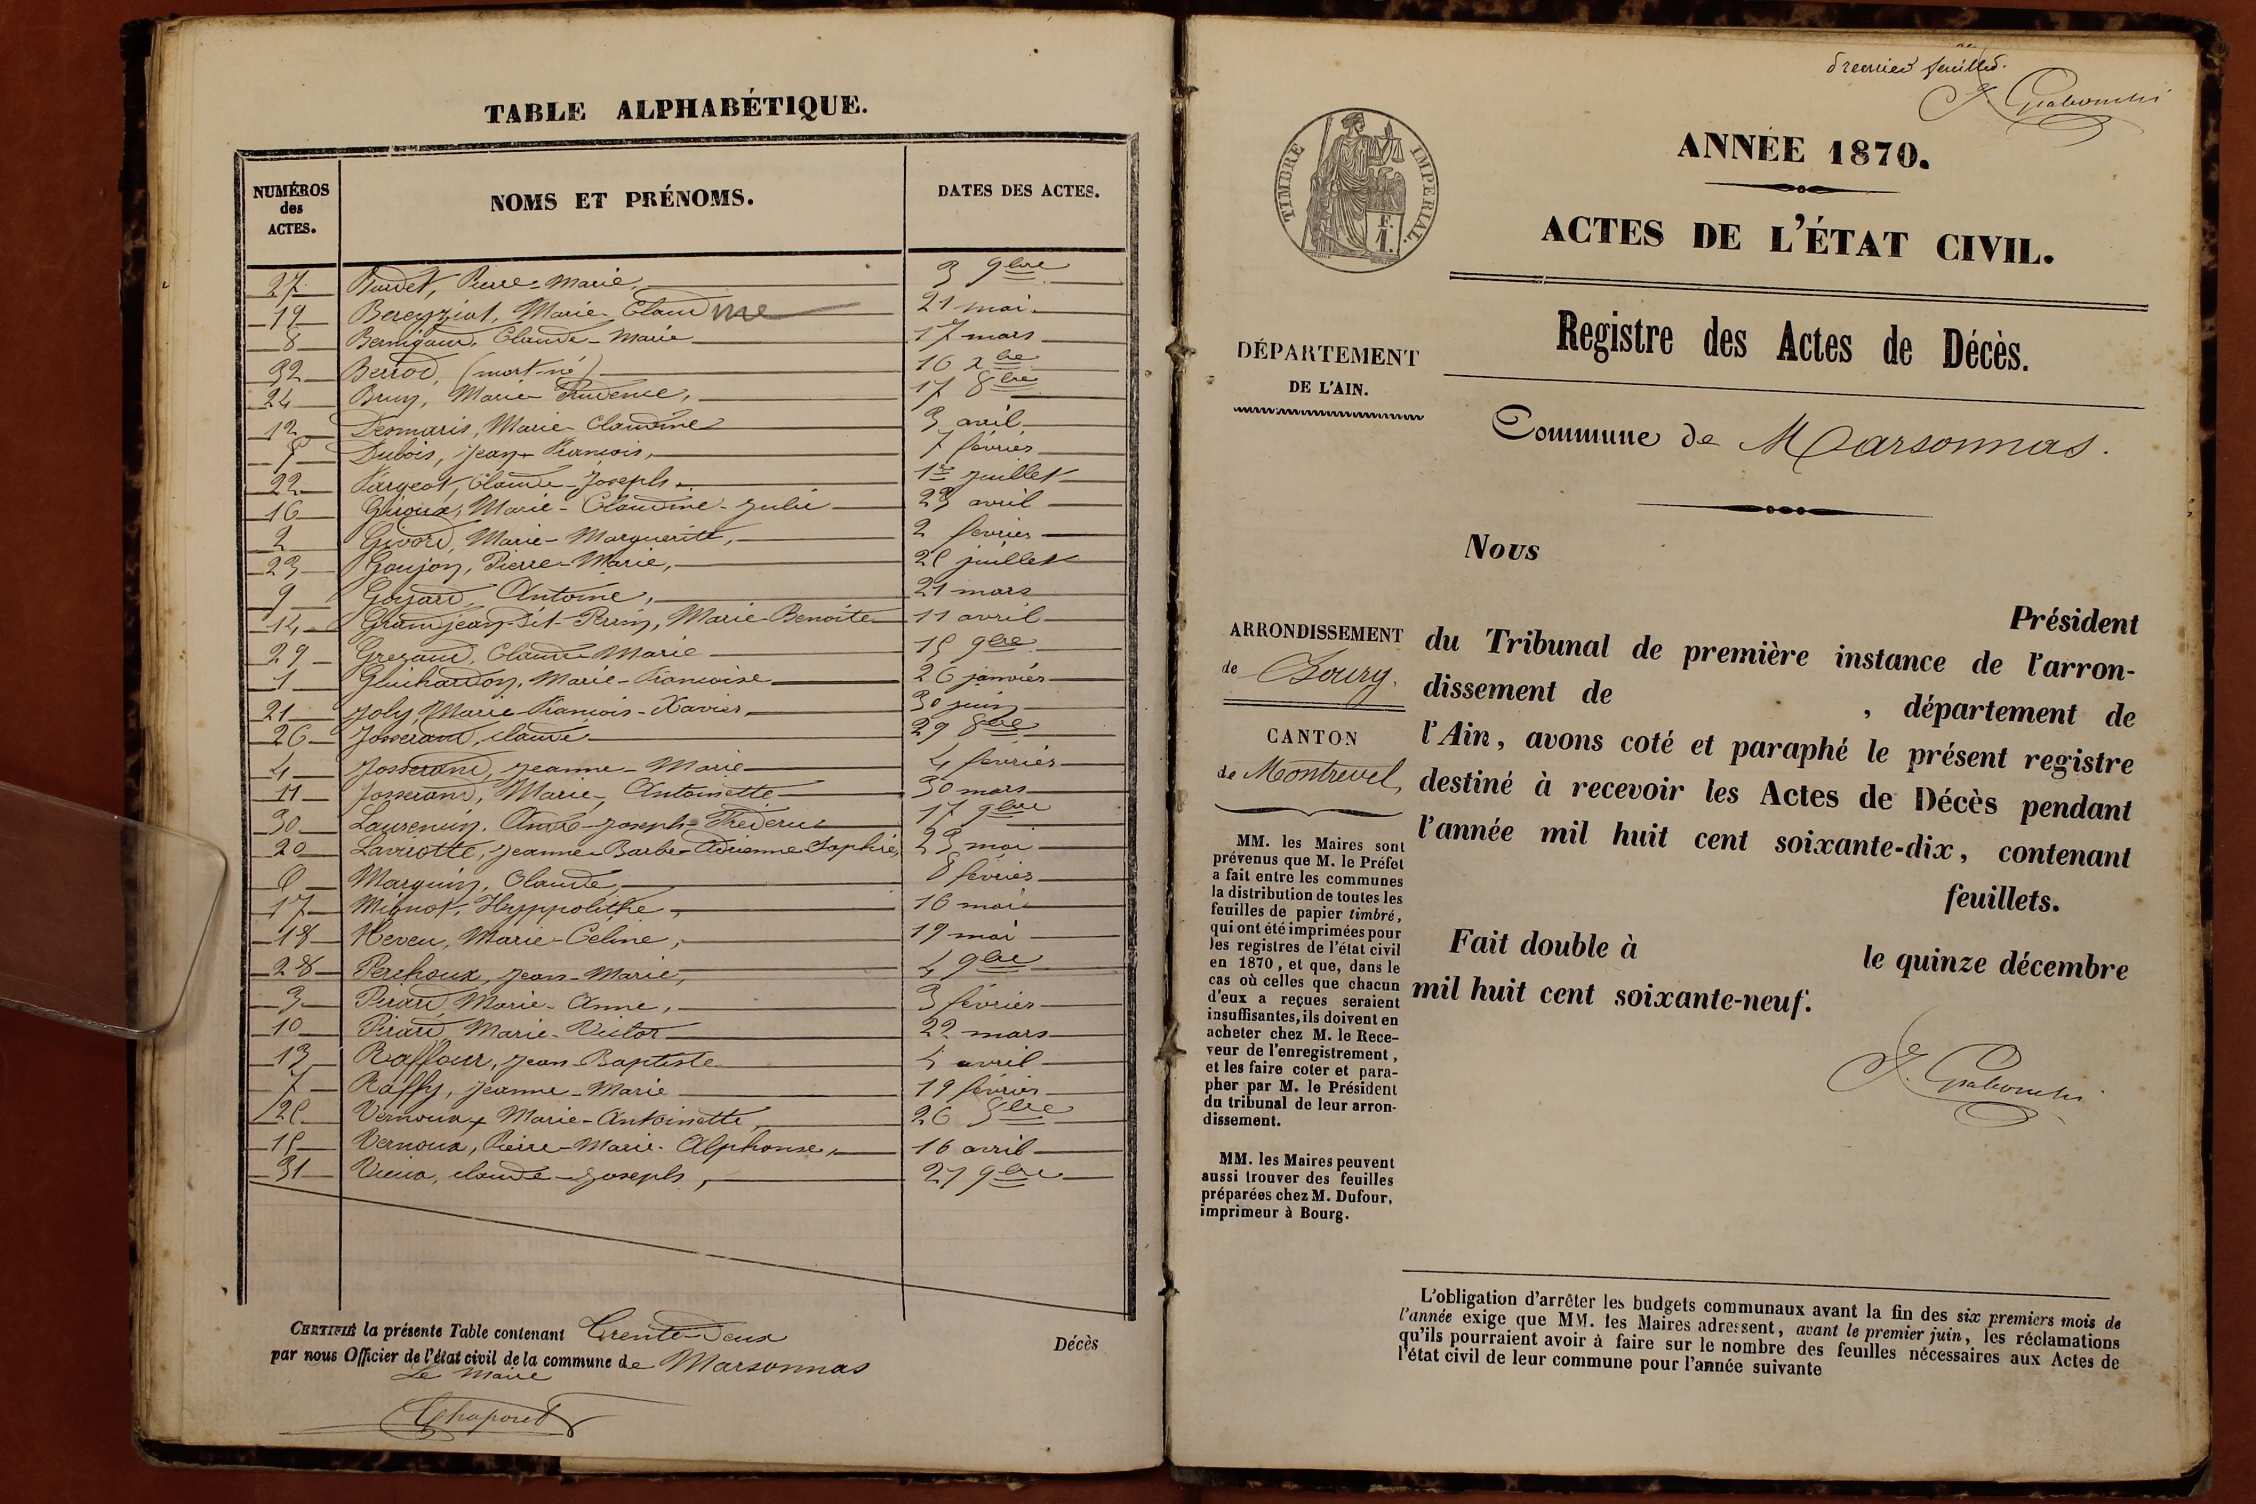 TABLE ALPHABÉTIQUE.
NUMÉROS des ACTES. NOMS ET PRÉNOMS. DATES DES ACTES.
27 Burdet, Pierre-Marie, 3 9bre
19 Bereyziat, Marie Claudine 21 mai
8 Bernigaud, Claude-Marie 17 mars
32 Berrod, (mort-né) 16 xbre
24 Brun, Marie Prudence, 17 8bre
12 Desmaris, Marie Claudine 3 avril
5 Dubois, Jean François, 7 février
22 Fargeot, Claude-Joseph 1er juillet
16 Giroux, Marie-Claudine-Julie 23 avril
2 Givord, Marie-Marguerite, 2 février
23 Goujon, Pierre-Marie, 25 juillet
9 Goyard, Antoine, 21 mars
14 Grandjean-dit-Perrin, Marie-Benoite 11 avril
29 Grezaud, Claude Marie 15 9bre
1 Guichardon, Marie-Françoise 26 janvier
21 Joly, Marie François-Xavier, 30 juin
26 Josserand, Claude 29 8bre
4 Josserand, Jeanne-Marie 4 février
11 Josserand, Marie, Antoinette 30 mars
30 Laurencin, André-Joseph-Fréderic 17 9bre
20 Lavriotte, Jeanne-Barbe-Adrienne Sophie, 23 mai
6 Marguin, Claude, 8 février
17 Mignot, Hyppolithe, 16 mai
18 Neveu, Marie-Celine, 19 mai
28 Perchoux, Jean-Marie, 4 9bre
3 Pirard, Marie-Anne, 3 février
10 Pirard, Marie-Victor 22 mars
13 Raffour, Jean-Baptiste 4 avril
7 Raffy, Jeanne-Marie 19 février
25 Vernoux, Marie-Antoinette, 26 8bre
15 Vernoux, Pierre-Marie-Alphonse, 16 avril
31 Vieux, Claude-Joseph, 27 9bre
CERTIFIÉ la présente Table contenant Trente-Deux Décès
par nous Officier de l'état civil de la commune de Marsonnas
Le Maire
premier feuillet.
TIMBRE IMPERIAL.
ANNÉE 1870.
ACTES DE L'ÉTAT CIVIL.
Registre des Actes de Décès.
DÉPARTEMENT
DE L'AIN.
Commune de Marsonnas.
Nous
Président
du Tribunal de première instance de l'arron-
dissement de , département de
l'Ain, avons coté et paraphé le présent registre
destiné à recevoir les Actes de Décès pendant
l'année mil huit cent soixante-dix, contenant
feuillets.
Fait double à le quinze décembre
mil huit cent soixante-neuf.
ARRONDISSEMENT
de Bourg.
CANTON
de Montrevel,
MM. les Maires sont
prévenus que M. le Préfet
a fait entre les communes
la distribution de toutes les
feuilles de papier timbré,
qui ont été imprimées pour
les registres de l'état civil
en 1870, et que, dans le
cas où celles que chacun
d'eux a reçues seraient
insuffisantes, ils doivent en
acheter chez M. le Rece-
veur de l'enregistrement,
et les faire coter et para-
pher par M. le Président
du tribunal de leur arron-
dissement.
MM. les Maires peuvent
aussi trouver des feuilles
préparées chez M. Dufour,
imprimeur à Bourg.
L'obligation d'arrêter les budgets communaux avant la fin des six premiers mois de
l'année exige que MM. les Maires adressent, avant le premier juin, les réclamations
qu'ils pourraient avoir à faire sur le nombre des feuilles nécessaires aux Actes de
l'état civil de leur commune pour l'année suivante